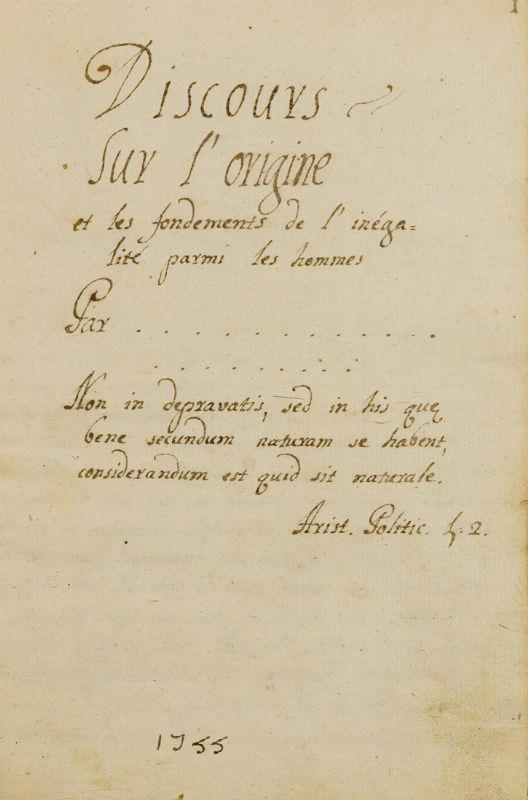 Discours
Sur l'origine
et les fondements de l'inéga=
lité parmi les hommes
Par . . . . . . . . . . . . . .
. . . . . . . . . .
Non in depravatis, sed in his quę
bene secundum naturam se habent,
considerandum est quid sit naturale.
Arist. Politic. L. 2.
1755